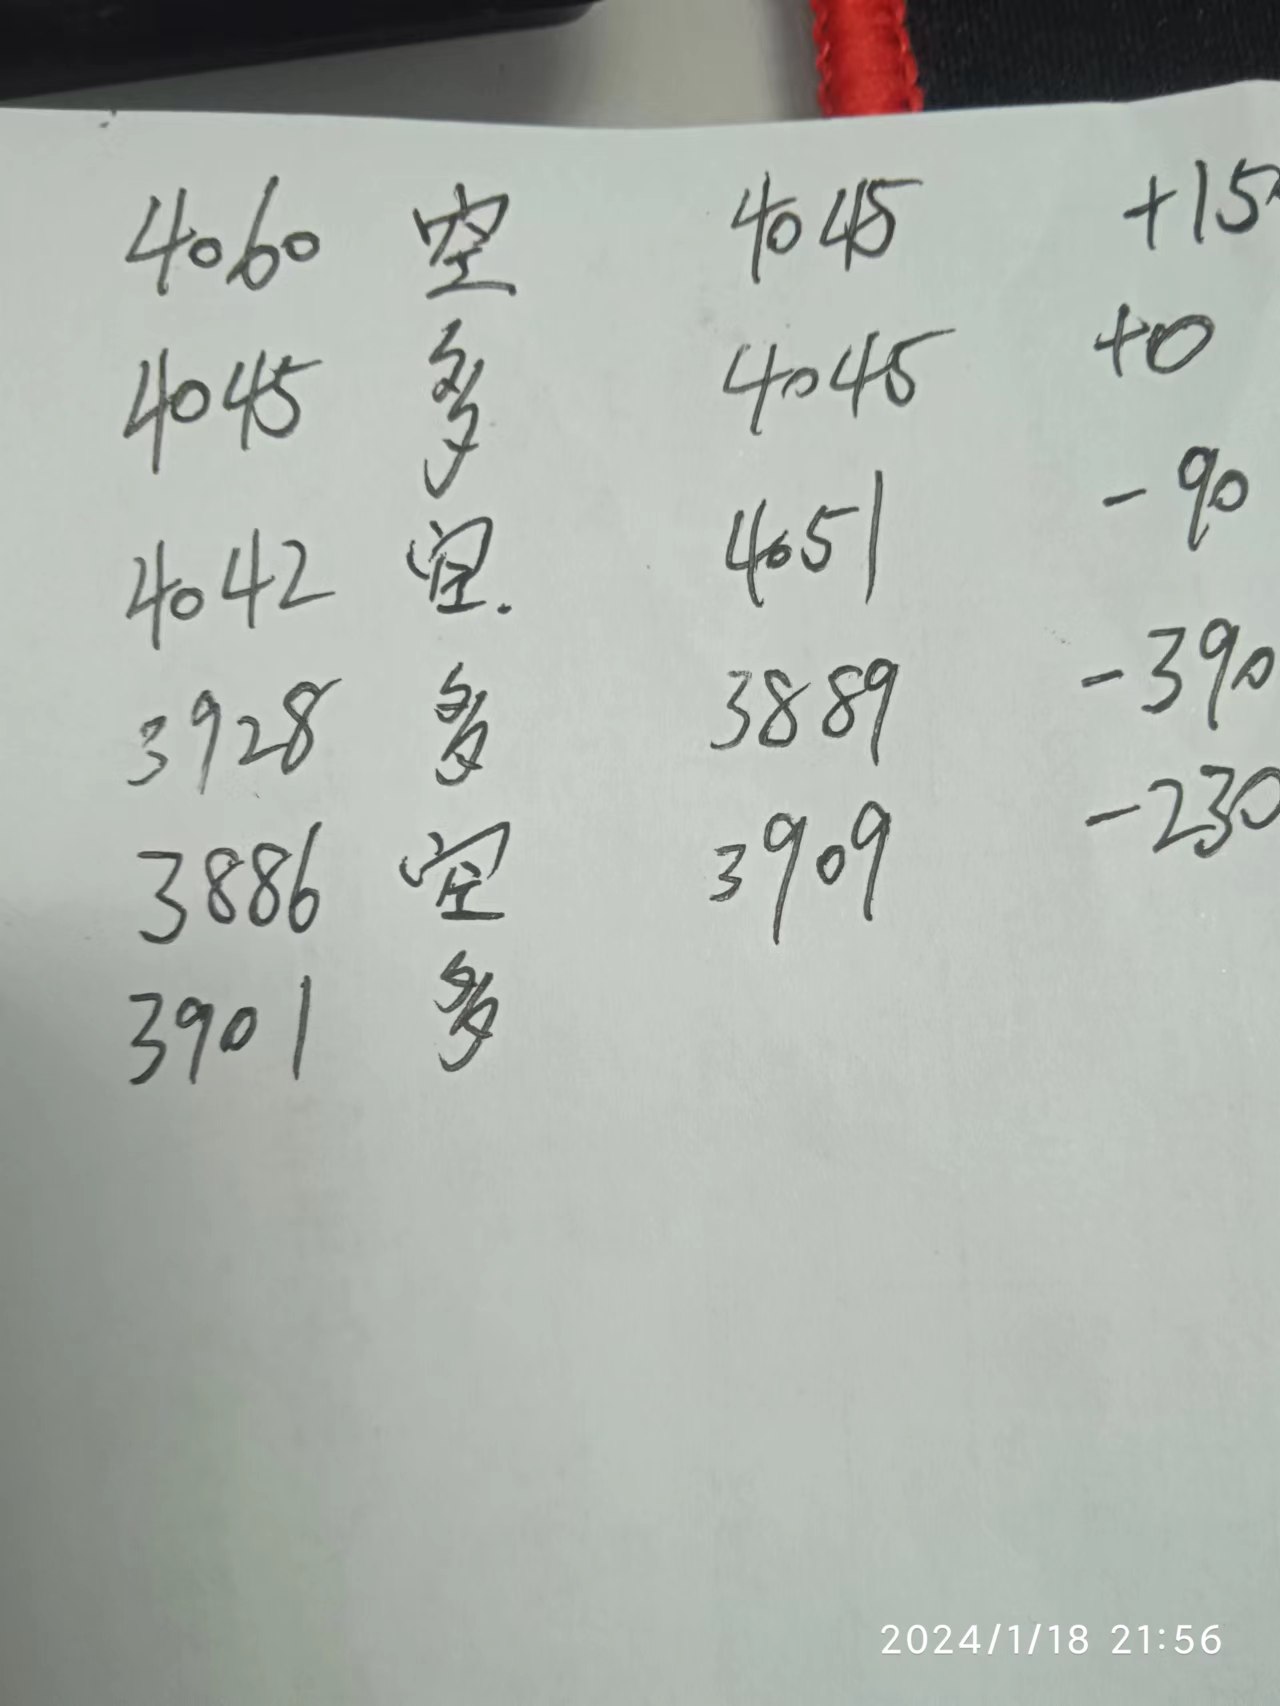 4060 空 4045 +15
4045 多 4045 +0
4042 空. 4051 -90
3928 多 3889 -390
3886 空 3909 -230
3901 多
2024/1/18 21:56